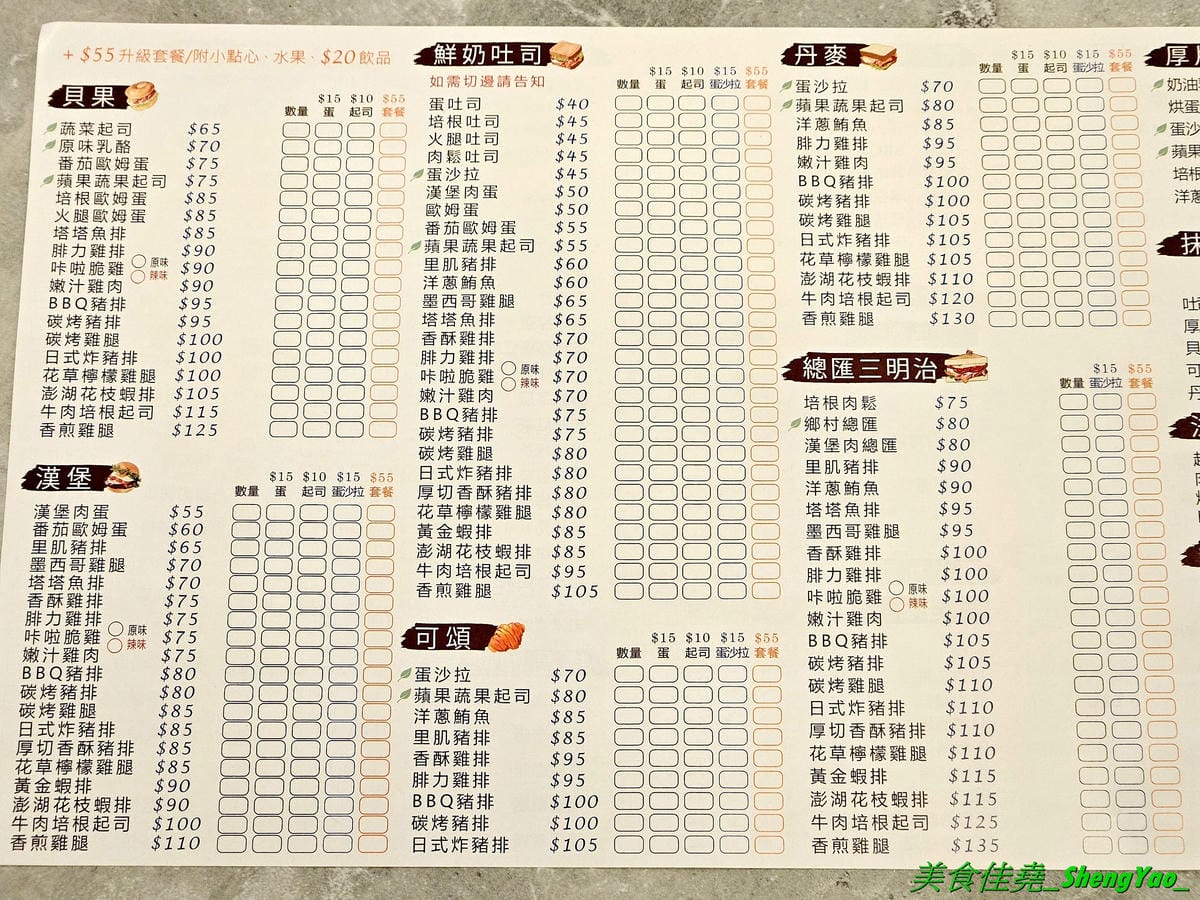 + $55 升級套餐/附小點心、水果、$20 飲品
貝果
數量 $15 蛋 $10 起司 $55 套餐
蔬菜起司 $65
原味乳酪 $70
番茄歐姆蛋 $75
蘋果蔬果起司 $75
培根歐姆蛋 $85
火腿歐姆蛋 $85
塔塔魚排 $85
腓力雞排 $90
咔啦脆雞 原味 辣味 $90
嫩汁雞肉 $90
BBQ豬排 $95
碳烤豬排 $95
碳烤雞腿 $100
日式炸豬排 $100
花草檸檬雞腿 $100
澎湖花枝蝦排 $105
牛肉培根起司 $115
香煎雞腿 $125
漢堡
數量 $15 蛋 $10 起司 $15 蛋沙拉 $55 套餐
漢堡肉蛋 $55
番茄歐姆蛋 $60
里肌豬排 $65
墨西哥雞腿 $70
塔塔魚排 $70
香酥雞排 $75
腓力雞排 $75
咔啦脆雞 原味 辣味 $75
嫩汁雞肉 $75
BBQ豬排 $80
碳烤豬排 $80
碳烤雞腿 $85
日式炸豬排 $85
厚切香酥豬排 $85
花草檸檬雞腿 $85
黃金蝦排 $90
澎湖花枝蝦排 $90
牛肉培根起司 $100
香煎雞腿 $110
鮮奶吐司
如需切邊請告知
數量 $15 蛋 $10 起司 $15 蛋沙拉 $55 套餐
蛋吐司 $40
培根吐司 $45
火腿吐司 $45
肉鬆吐司 $45
蛋沙拉 $45
漢堡肉蛋 $50
歐姆蛋 $50
番茄歐姆蛋 $55
蘋果蔬果起司 $55
里肌豬排 $60
洋蔥鮪魚 $60
墨西哥雞腿 $65
塔塔魚排 $65
香酥雞排 $70
腓力雞排 $70
咔啦脆雞 原味 辣味 $70
嫩汁雞肉 $70
BBQ豬排 $75
碳烤豬排 $75
碳烤雞腿 $80
日式炸豬排 $80
厚切香酥豬排 $80
花草檸檬雞腿 $80
黃金蝦排 $85
澎湖花枝蝦排 $85
牛肉培根起司 $95
香煎雞腿 $105
可頌
數量 $15 蛋 $10 起司 $15 蛋沙拉 $55 套餐
蛋沙拉 $70
蘋果蔬果起司 $80
洋蔥鮪魚 $85
里肌豬排 $85
香酥雞排 $95
腓力雞排 $95
BBQ豬排 $100
碳烤豬排 $100
日式炸豬排 $105
丹麥
數量 $15 蛋 $10 起司 $15 蛋沙拉 $55 套餐
蛋沙拉 $70
蘋果蔬果起司 $80
洋蔥鮪魚 $85
腓力雞排 $95
嫩汁雞肉 $95
BBQ豬排 $100
碳烤豬排 $100
碳烤雞腿 $105
日式炸豬排 $105
花草檸檬雞腿 $105
澎湖花枝蝦排 $110
牛肉培根起司 $120
香煎雞腿 $130
總匯三明治
數量 $15 蛋沙拉 $55 套餐
培根肉鬆 $75
鄉村總匯 $80
漢堡肉總匯 $80
里肌豬排 $90
洋蔥鮪魚 $90
塔塔魚排 $95
墨西哥雞腿 $95
香酥雞排 $100
腓力雞排 $100
咔啦脆雞 原味 辣味 $100
嫩汁雞肉 $100
BBQ豬排 $105
碳烤豬排 $105
碳烤雞腿 $110
日式炸豬排 $110
厚切香酥豬排 $110
花草檸檬雞腿 $110
黃金蝦排 $115
澎湖花枝蝦排 $115
牛肉培根起司 $125
香煎雞腿 $135
厚
奶油
烘蛋
蛋沙
蘋果
培根
洋蔥
抹
吐司
厚
貝
可
丹
美食佳堯_ShengYao_